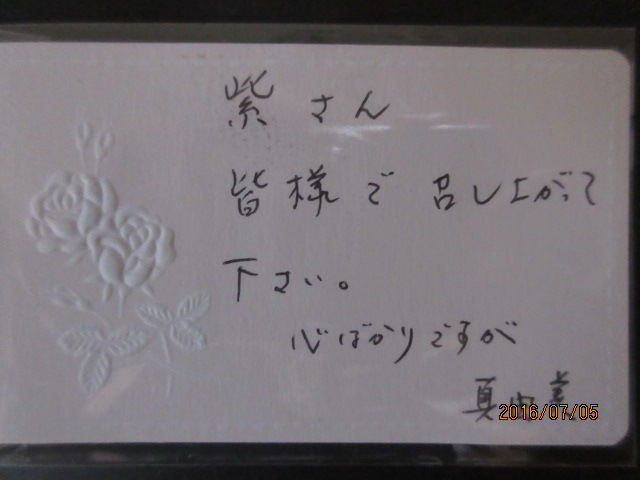 紫さん
皆様で召し上がって
下さい。
心ばかりですが
真由美
2016/07/05